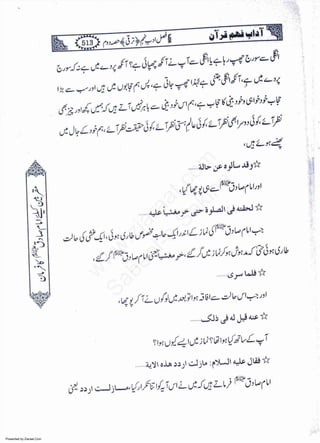 آداب فہم قرآن
فصل ادب پنجم (ترتیل) حصہ دوم
513
انگلی سے سورج چھپ رہا ہے یا انگلی سے آپ نے آنکھ چھپائی ہے؟ آنکھ پردے میں ہے نہ کہ سورج
پردے میں ہے، آنکھ انگلی سے چھپ جاتی ہے لہٰذا ہم حجابوں میں ہیں اور سب سے بڑا
حجاب خود خواہی و خود بینی کا حجاب ہے، ہم اس خود بینی سے باہر نہیں آتے ہیں کہ ہمیں کچھ اور چیز بھی
نظر آئے، کوئی دوسرا بھی نظر آئے، کوئی عالم ہستی نظر آئے، کوئی حقیقت نظر آئے، ہم خود کے جال میں
پھنسے ہوئے ہیں،
☆ وقد سألوه عن حالة
اور امام صادقؑ سے ہی پوچھا گیا،
☆ لحقته في الصلوة حتى خر مغشيا عليه
جب امام صادقؑ کی نماز کے اندر ایک حالت مخصوص طاری ہوئی، ایک غشی کی حالت
طاری ہوئی حتیٰ کہ مدہوش ہو کر نماز میں گر گئے، خر مغشیا یعنی امام صادقؑ گر گئے،
☆ فلما سرى
اور جب اس حالت سے افاقہ ہوا تو بعد میں لوگوں نے آ کر پوچھا،
☆ عنه قيل له في ذلك
آپ کے ساتھ کیا ہوا تھا؟ نماز میں ایسے کیوں ہوا؟
☆ فقال عليه السلام: مازلت اردد هذه الاية
امام صادقؑ فرماتے ہیں کہ میں نے اس آیہ کو اتنا تکرار کیا، مازلت اردد یعنی
مقربین کیلئے امام صادقؑ کا فرمان
Presented by Ziaraat.Com